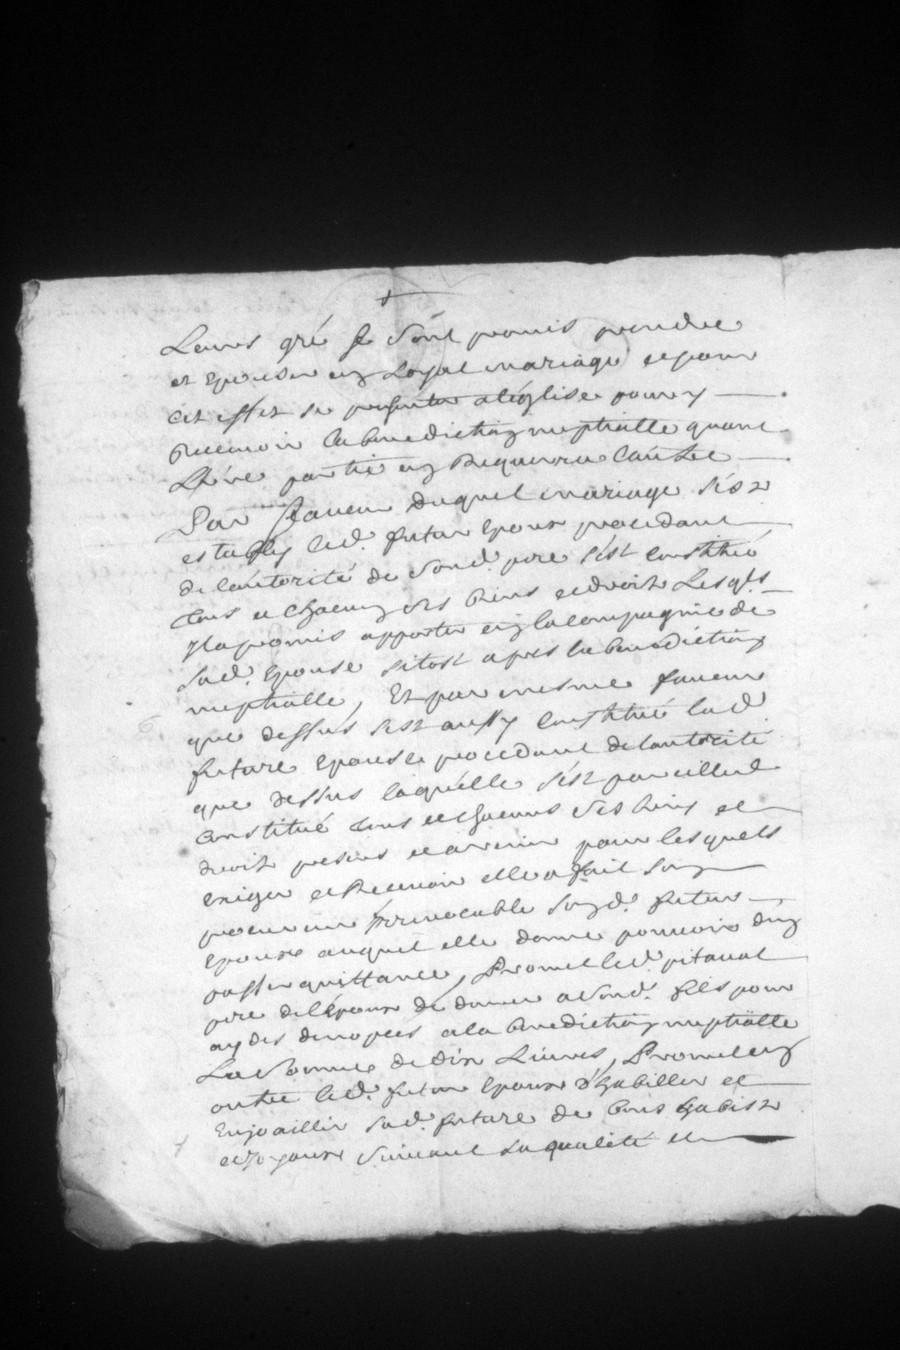 Leurs gré se sont promis prendre
et epouser en Loyal mariage et pour
cet effet se presenter a l'église pour y
Recevoir la benediction nuptialle quand
L'une partie en Requerra lautre
Par faveur duquel mariage s'est
estably led. futur epoux procedant
de l'autorité de sond. pere s'est constitué
tous et chacuns ses biens et droits Lesqls
Il a promis apporter en la compagnie de
sad. epouse sitost apres la benediction
nuptialle, Et par mesme faveur
que dessus s'est aussy constitué lad
future epouse procedant de l'autorité
que dessus laquelle s'est pareillemt
constitué tous et chacuns ses biens et
droits presens et avenir pour lesquels
exiger et Recevoir elle a fait son
procureur irrevocable sond. futur
epoux auquel elle donne pouvoir d'en
passer quittance, Promet led. pitaval
pere de l'epoux de donner a sond. fils pour
aydes de nopces a la benediction nuptialle
La somme de dix Livres, Promet en
outre led. futur epoux d'habiller et
Enjoailler sad. future de bons habist
et joyaux suivant sa qualité et